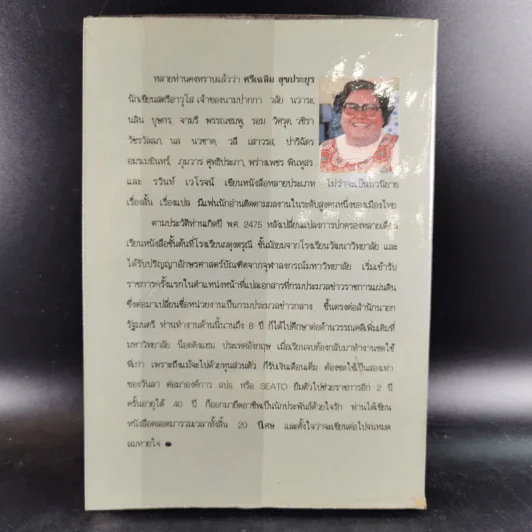 หลายท่านคงทราบแล้วว่า ศรีเฉลิม สุขประยูร
นักเขียนสตรีอาวุโส เจ้าของนามปากกา วลัย นวาระ,
นลิน บุษกร, จามรี พรรณชมพู, รอม วิศรุต, วชิรา
วัชรวัลลภ, นล นวชาต, วลี เสาวรส, ปาริฉัตร
อมรนมรินทร์, ภุมวาร ศุทธิประภา, พร่างเพชร พินทุสร
และ รวินท์ เวโรจน์ เขียนหนังสือหลายประเภท ไม่ว่าจะเป็นนวนิยาย
เรื่องสั้น เรื่องแปล มีแฟนนักอ่านติดตามผลงานในระดับสูงคนหนึ่งของเมืองไทย
ตามประวัติท่านเกิดปี พ.ศ. 2475 หลังเปลี่ยนแปลงการปกครองหลายเดือน
เรียนหนังสือชั้นต้นที่โรงเรียนผดุงดรุณี ชั้นมัธยมจากโรงเรียนวัฒนาวิทยาลัย และ
ได้รับปริญญาอักษรศาสตร์บัณฑิตจากจุฬาลงกรณ์มหาวิทยาลัย เริ่มเข้ารับ
ราชการครั้งแรกในตำแหน่งหน้าที่แปลเอกสารที่กรมประมวลข่าวราชการแผ่นดิน
ซึ่งต่อมาเปลี่ยนชื่อหน่วยงานเป็นกรมประมวลข่าวกลาง ขึ้นตรงต่อสำนักนายก
รัฐมนตรี ท่านทำงานด้านนี้นานถึง 8 ปี ก็ได้ไปศึกษาต่อด้านวรรณคดีเพิ่มเติมที่
มหาวิทยาลัย น็อตติงแฮม ประเทศอังกฤษ เมื่อเรียนจบต้องกลับมาทำงานชดใช้
ที่เก่า เพราะถึงแม้จะไปด้วยทุนส่วนตัว ก็รับเงินเดือนเต็ม ต้องชดใช้เป็นสองเท่า
ของวันลา ต่อมาองค์การ สปอ หรือ SEATO ยืมตัวไปช่วยราชการอีก 2 ปี
ครั้นอายุได้ 40 ปี ก็ออกมายึดอาชีพเป็นนักประพันธ์ด้วยใจรัก ท่านได้เขียน
หนังสือตลอดมารวมเวลาทั้งสิ้น 20 ปีเศษ และตั้งใจว่าจะเขียนต่อไปจนหมด
ลมหายใจ